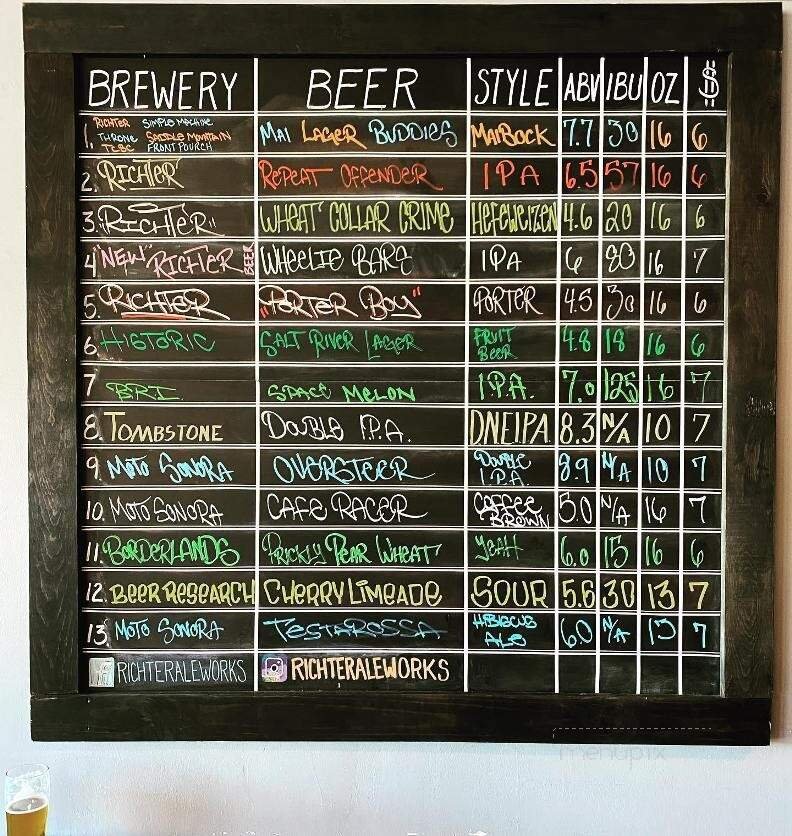 BREWERY BEER STYLE ABV IBU OZ $
1. RICHTER SIMPLE MACHINE THRONE SADDLE MOUNTAIN TCBC FRONT POURCH MAI LAGER BUDDIES MAIBOCK 7.7 30 16 6
2. RICHTER REPEAT OFFENDER IPA 6.5 57 16 6
3. RICHTER WHEAT COLLAR CRIME HEFEWEIZEN 4.6 20 16 6
4 "NEW" RICHTER BEER WHEELIE BARS IPA 6 80 16 7
5. RICHTER "PORTER BOY" PORTER 4.5 30 16 6
6. HISTORIC SALT RIVER LAGER FRUIT BEER 4.8 18 16 6
7 BRI SPACE MELON I.P.A. 7.0 125 16 7
8. TOMBSTONE DOUBLE I.P.A. DNEIPA 8.3 N/A 10 7
9. MOTO SONORA OVERSTEER DOUBLE I.P.A. 8.9 N/A 10 7
10. MOTO SONORA CAFE RACER COFFEE BROWN 5.0 N/A 16 7
11. BORDERLANDS PRICKLY PEAR WHEAT YEAH 6.0 15 16 6
12. BEER RESEARCH CHERRY LIMEADE SOUR 5.6 30 13 7
13. MOTO SONORA TESTAROSSA HIBISCUS ALE 6.0 N/A 13 7
RICHTERALEWORKS RICHTERALEWORKS
menupix